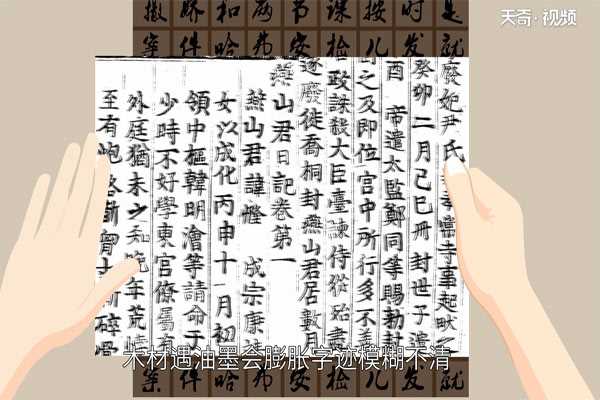 天奇·视频
撤骄和两节课按时是
案件哈弗安检儿发就
廢妃尹氏 常寺事起畎
癸卯二月己巳冊封世子遣
酉 帝遣太監鄭同等賜勅封
之及即位宮中所行多不
政誅殺大臣臺諫侍從殆盡
逐廢徙喬桐封燕山君居數月
燕山君日記卷第一
燕山君諱㦕 成宗康靖
女以成化丙申十一月初
領中樞韓明澮等請命于
少時不好學東宮僚屬有
外庭猶未之知晚年荒
至有炮烙斮胷寸斬碎骨
木材遇油墨会膨胀字迹模糊不清
案件哈弗安检儿发就